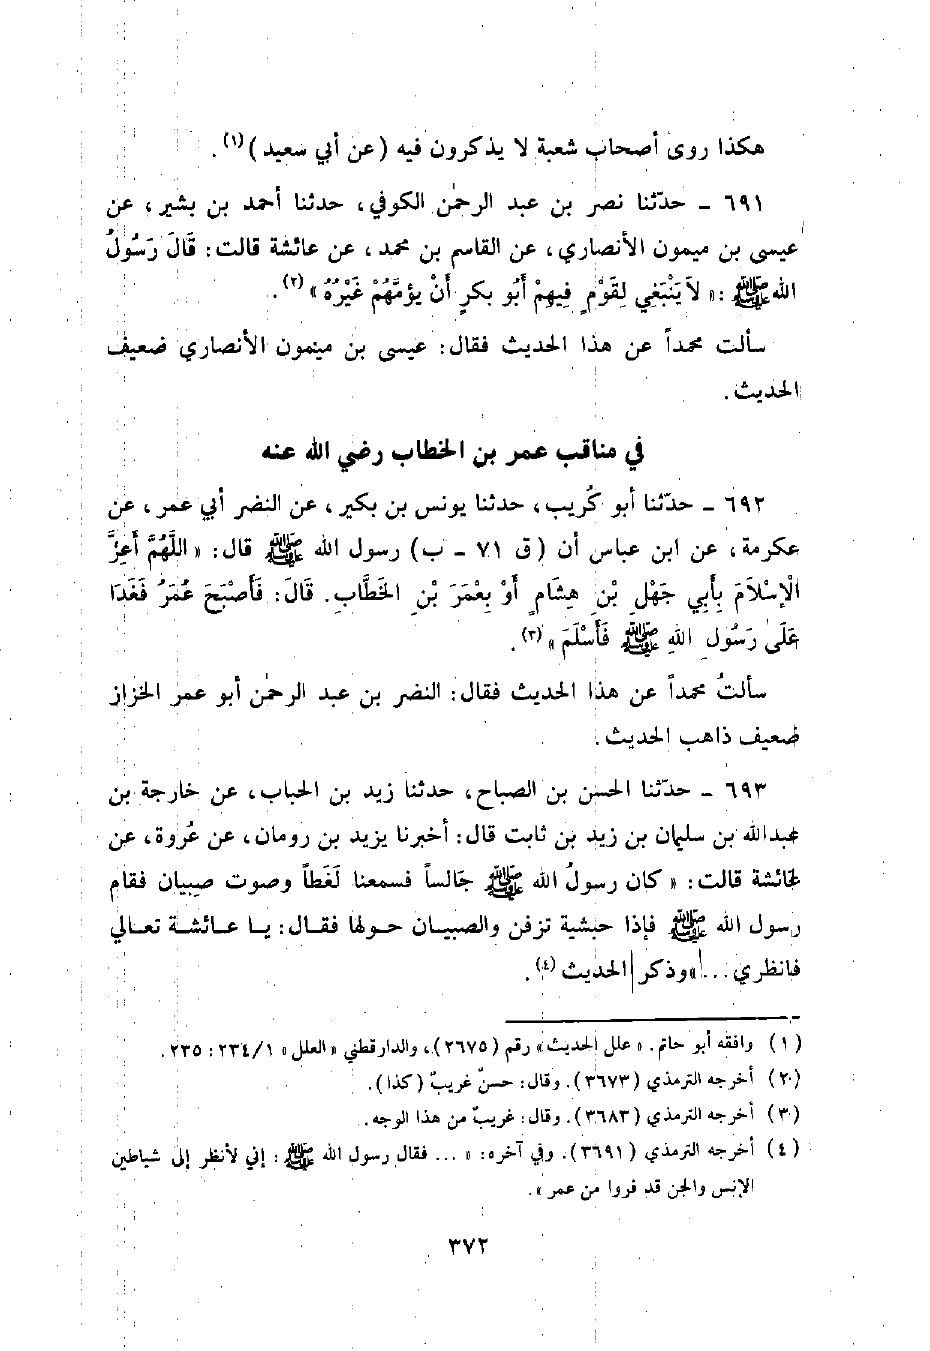 هكذا روى أصحاب شعبة لا يذكرون فيه (عن أبي سعيد)(١).
٦٩١ - حدّثنا نصر بن عبد الرحمٰن الكوفي، حدثنا أحمد بن بشير، عن
عيسى بن ميمون الأنصاري، عن القاسم بن محمد، عن عائشة قالت: قَالَ رَسُولُ
الله ﷺ: « لاَ يَنْبَغِي لِقَوْمٍ فِيهِمْ أَبُو بكرٍ أَنْ يؤمَّهُمْ غَيْرُهُ »(٢).
سألت محمداً عن هذا الحديث فقال: عيسى بن ميمون الأنصاري ضعيف
الحديث.
في مناقب عمر بن الخطاب رضي الله عنه
٦٩٢ - حدّثنا أبو كُريب، حدثنا يونس بن بكير، عن النضر أبي عمر، عن
عكرمة، عن ابن عباس أن (ق ٧١ - ب) رسول الله ﷺ قال: « اللَّهُمَّ أَعِزَّ
الْإسْلاَمَ بِأَبِي جَهْلِ بْنِ هِشَامٍ أَوْ بِعْمَرَ بْنِ الخَطَّابِ. قَالَ: فَأَصْبَحَ عُمَرُ فَغَدَا
عَلَى رَسُولِ اللهِ ﷺ فَأَسْلَمَ »(٣).
سألتُ محمداً عن هذا الحديث فقال: النضر بن عبد الرحمٰن أبو عمر الخزاز
ضعيف ذاهب الحديث.
٦٩٣ - حدّثنا الحسن بن الصباح، حدثنا زيد بن الحباب، عن خارجة بن
عبدالله بن سليمان بن زيد بن ثابت قال: أخبرنا يزيد بن رومان، عن عُروة، عن
عائشة قالت: « كان رسولُ الله ﷺ جَالساً فسمعنا لَغَطاً وصوت صبيان فقام
رسول الله ﷺ فإذا حبشية تزفن والصبيان حولها فقال: يا عائشة تعالي
فانظري... » وذكر الحديث(٤).
(١) وافقه أبو حاتم. « علل الحديث » رقم (٢٦٧٥)، والدارقطني « العلل » ٢٣٤/١: ٢٣٥.
(٢) أخرجه الترمذي (٣٦٧٣). وقال: حسنٌ غريبٌ (كذا).
(٣) أخرجه الترمذي (٣٦٨٣). وقال: غريبٌ من هذا الوجه.
(٤) أخرجه الترمذي (٣٦٩١). وفي آخره: « ... فقال رسول الله ﷺ: إني لأنظر إلى شياطين
الإنس والجن قد فروا من عمر ».
٣٧٢